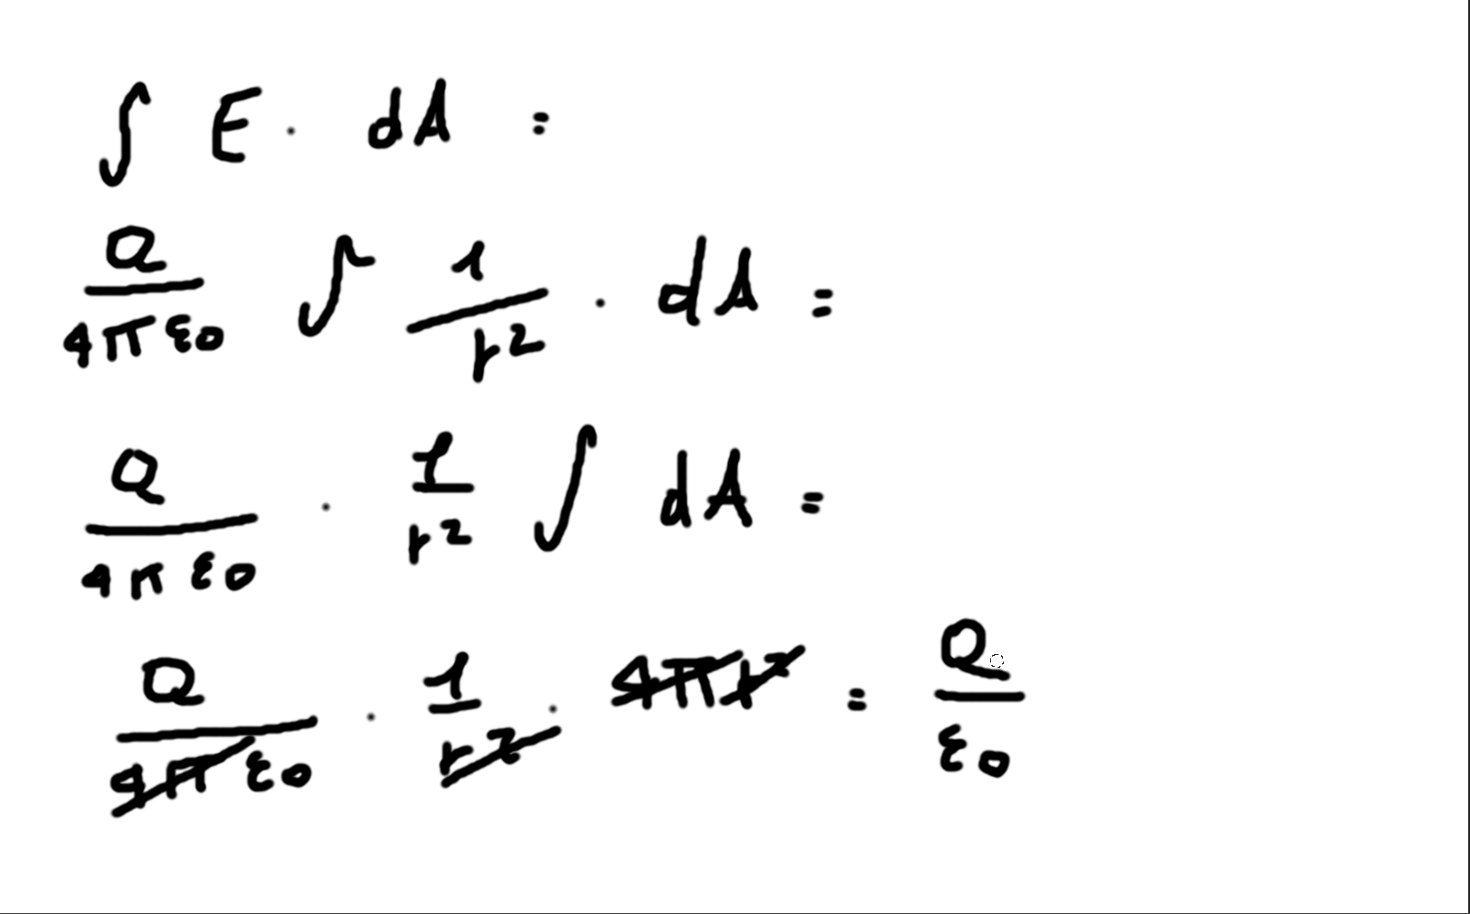 ∫ E · dA =
Q/4πε0 ∫ 1/r² · dA =
Q/4πε0 · 1/r² ∫ dA =
Q/4πε0 · 1/r² · 4πr² = Q/ε0